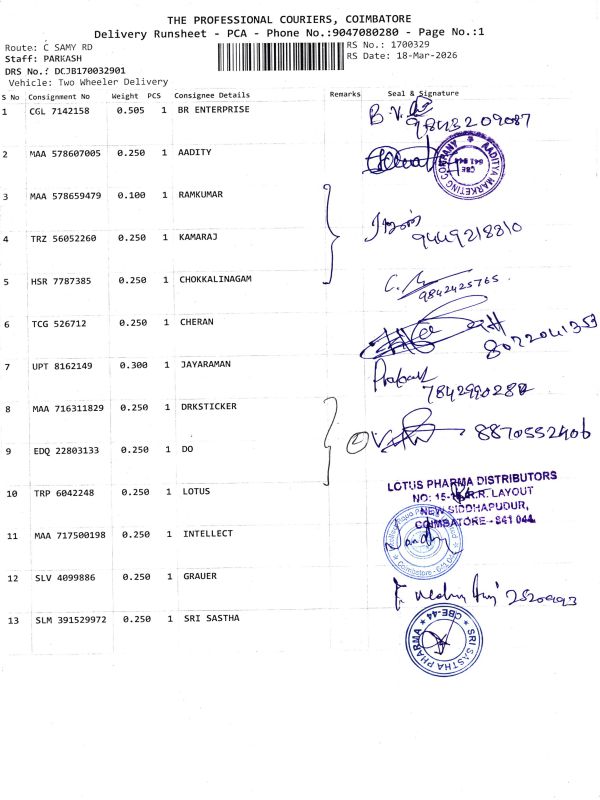 THE PROFESSIONAL COURIERS, COIMBATORE
Delivery Runsheet - PCA - Phone No.:9047080280 - Page No.:1
Route: C SAMY RD
RS No.: 1700329
Staff: PARKASH
RS Date: 18-Mar-2026
DRS No.: DCJB170032901
Vehicle: Two Wheeler Delivery
S No Consignment No Weight PCS Consignee Details Remarks Seal & Signature
1 CGL 7142158 0.505 1 BR ENTERPRISE
9843209087
2 MAA 578607005 0.250 1 AADITY
AADITYA MARKETING COMPANY CBE 641 044
3 MAA 578659479 0.100 1 RAMKUMAR
4 TRZ 56052260 0.250 1 KAMARAJ
9449218810
5 HSR 7787385 0.250 1 CHOKKALINAGAM
9842425765
6 TCG 526712 0.250 1 CHERAN
8072041353
7 UPT 8162149 0.300 1 JAYARAMAN
8 MAA 716311829 0.250 1 DRKSTICKER
8870552406
9 EDQ 22803133 0.250 1 DO
10 TRP 6042248 0.250 1 LOTUS
LOTUS PHARMA DISTRIBUTORS
NO: 15- R.R. LAYOUT
NEW SIDDHAPUDUR,
COIMBATORE - 641 044.
11 MAA 717500198 0.250 1 INTELLECT
12 SLV 4099886 0.250 1 GRAUER
13 SLM 391529972 0.250 1 SRI SASTHA
SRI SASTHA PHARMA CBE-44